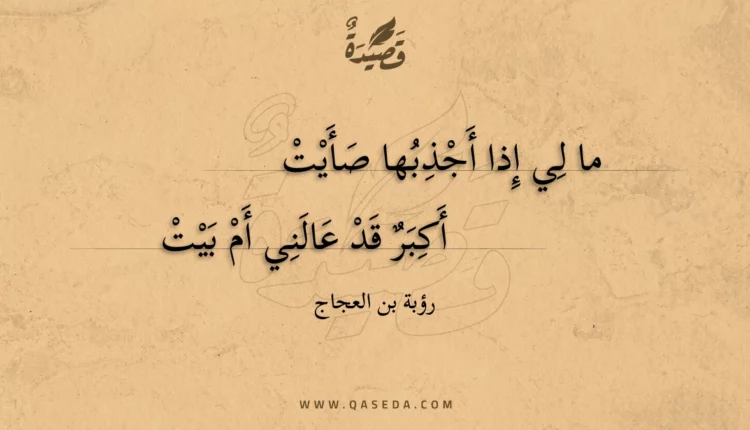 قَصِيدَةٌ
ما لِي إِذا أَجْذِبُها صَأَيْتْ
أَكِبَرٌ قَدْ عَالَنِي أَمْ بَيْتْ
رؤبة بن العجاج
WWW.QASEDA.COM